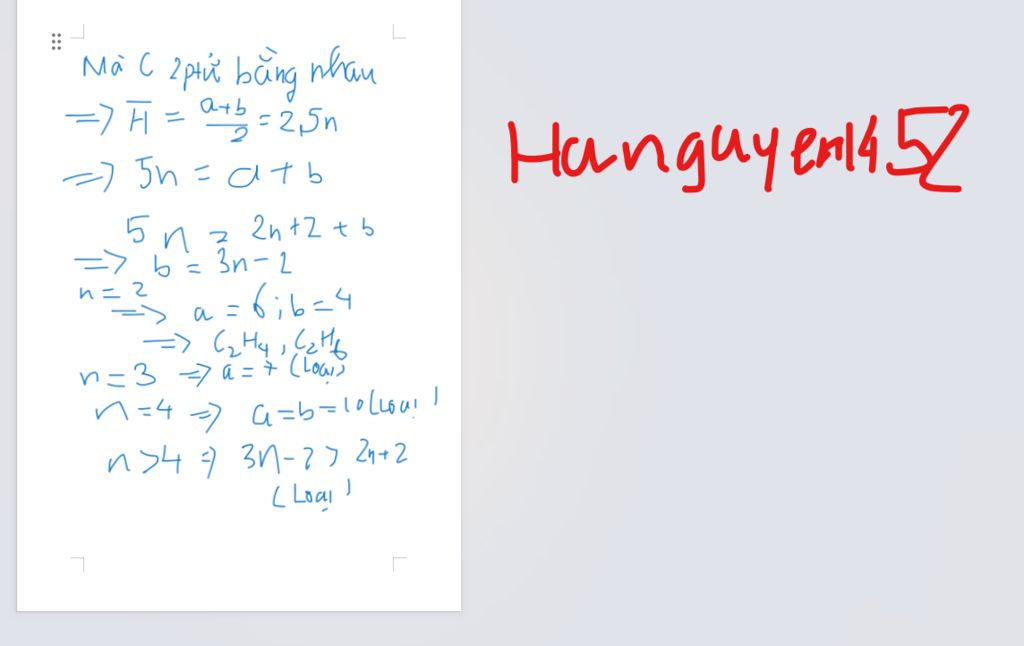 Mà C 2 ptử bằng nhau
=> H̅ = a+b/2 = 2,5n
=> 5n = a + b
5n = 2n+2 + b
=> b = 3n - 2
n = 2
=> a = 6; b = 4
=> C₂H₄, C₂H₆
n = 3 => a = 7 (Loại)
n = 4 => a = b = 10 (Loại)
n > 4 => 3n - 2 > 2n + 2
(Loại)
Hanguyen1452